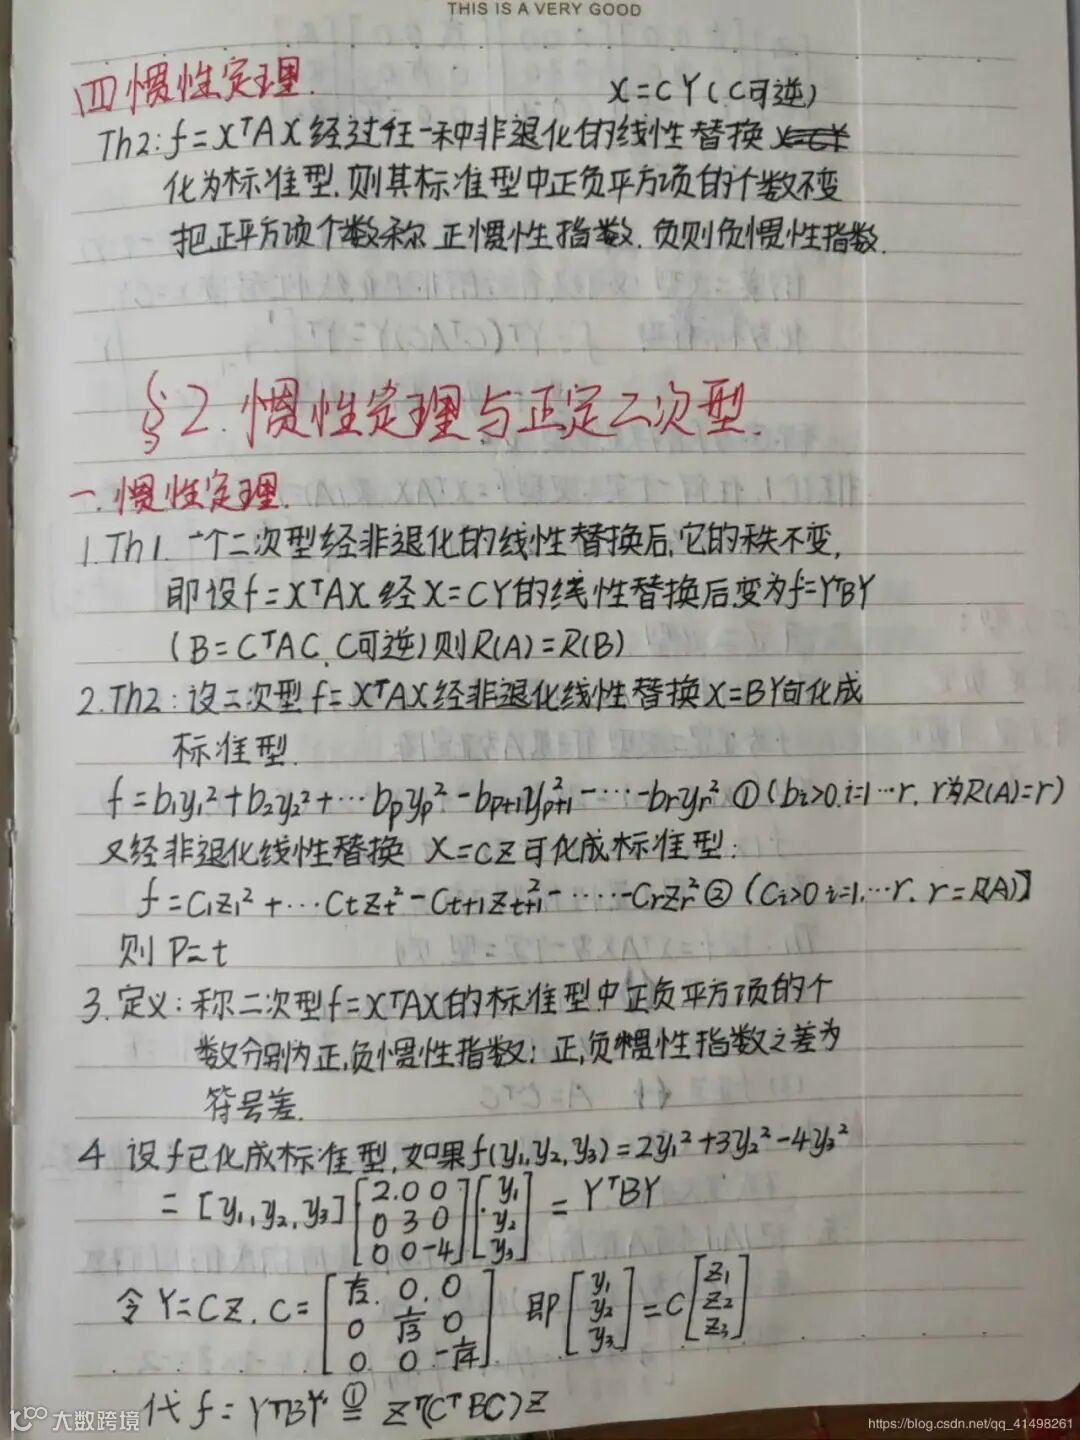 THIS IS A VERY GOOD
(四)惯性定理.
X=CY(C可逆)
Th2:f=XᵀAX经过任一种非退化的线性替换 X=CY
化为标准型.则其标准型中正负平方项的个数不变
把正平方项个数称 正惯性指数.负则负惯性指数.
§2.惯性定理与正定二次型.
一.惯性定理.
1.Th1.一个二次型经非退化的线性替换后,它的秩不变,
即设f=XᵀAX经X=CY的线性替换后变为f=YᵀBY
(B=CᵀAC.C可逆)则R(A)=R(B)
2.Th2:设二次型f=XᵀAX经非退化线性替换X=BY可化成
标准型.
f=b₁y₁²+b₂y₂²+…bₚyₚ²-bₚ₊₁yₚ₊₁²-…-bᵣyᵣ² ①(bᵢ>0.i=1…r.r为R(A)=r)
又经非退化线性替换 X=CZ可化成标准型:
f=C₁Z₁²+…CₜZₜ²-Cₜ₊₁Zₜ₊₁²-……-CᵣZᵣ² ②(Cᵢ>0 i=1.…r.r=R(A)]
则 P=t
3.定义:称二次型f=XᵀAX的标准型中正负平方项的个
数分别为正,负惯性指数;正,负惯性指数之差为
符号差.
4 设f已化成标准型,如果f(y₁,y₂,y₃)=2y₁²+3y₂²-4y₃²
=[y₁,y₂,y₃][2.0 0; 0 3 0; 0 0 -4][y₁; y₂; y₃]=YᵀBY
令Y=CZ.C=[1/√2. 0. 0; 0 1/√3 0; 0 0 -1/√4] 即[y₁; y₂; y₃]=C[z₁; z₂; z₃]
代 f=YᵀBY ①= Zᵀ(CᵀBC)Z
大数跨境
https://blog.csdn.net/qq_41498261